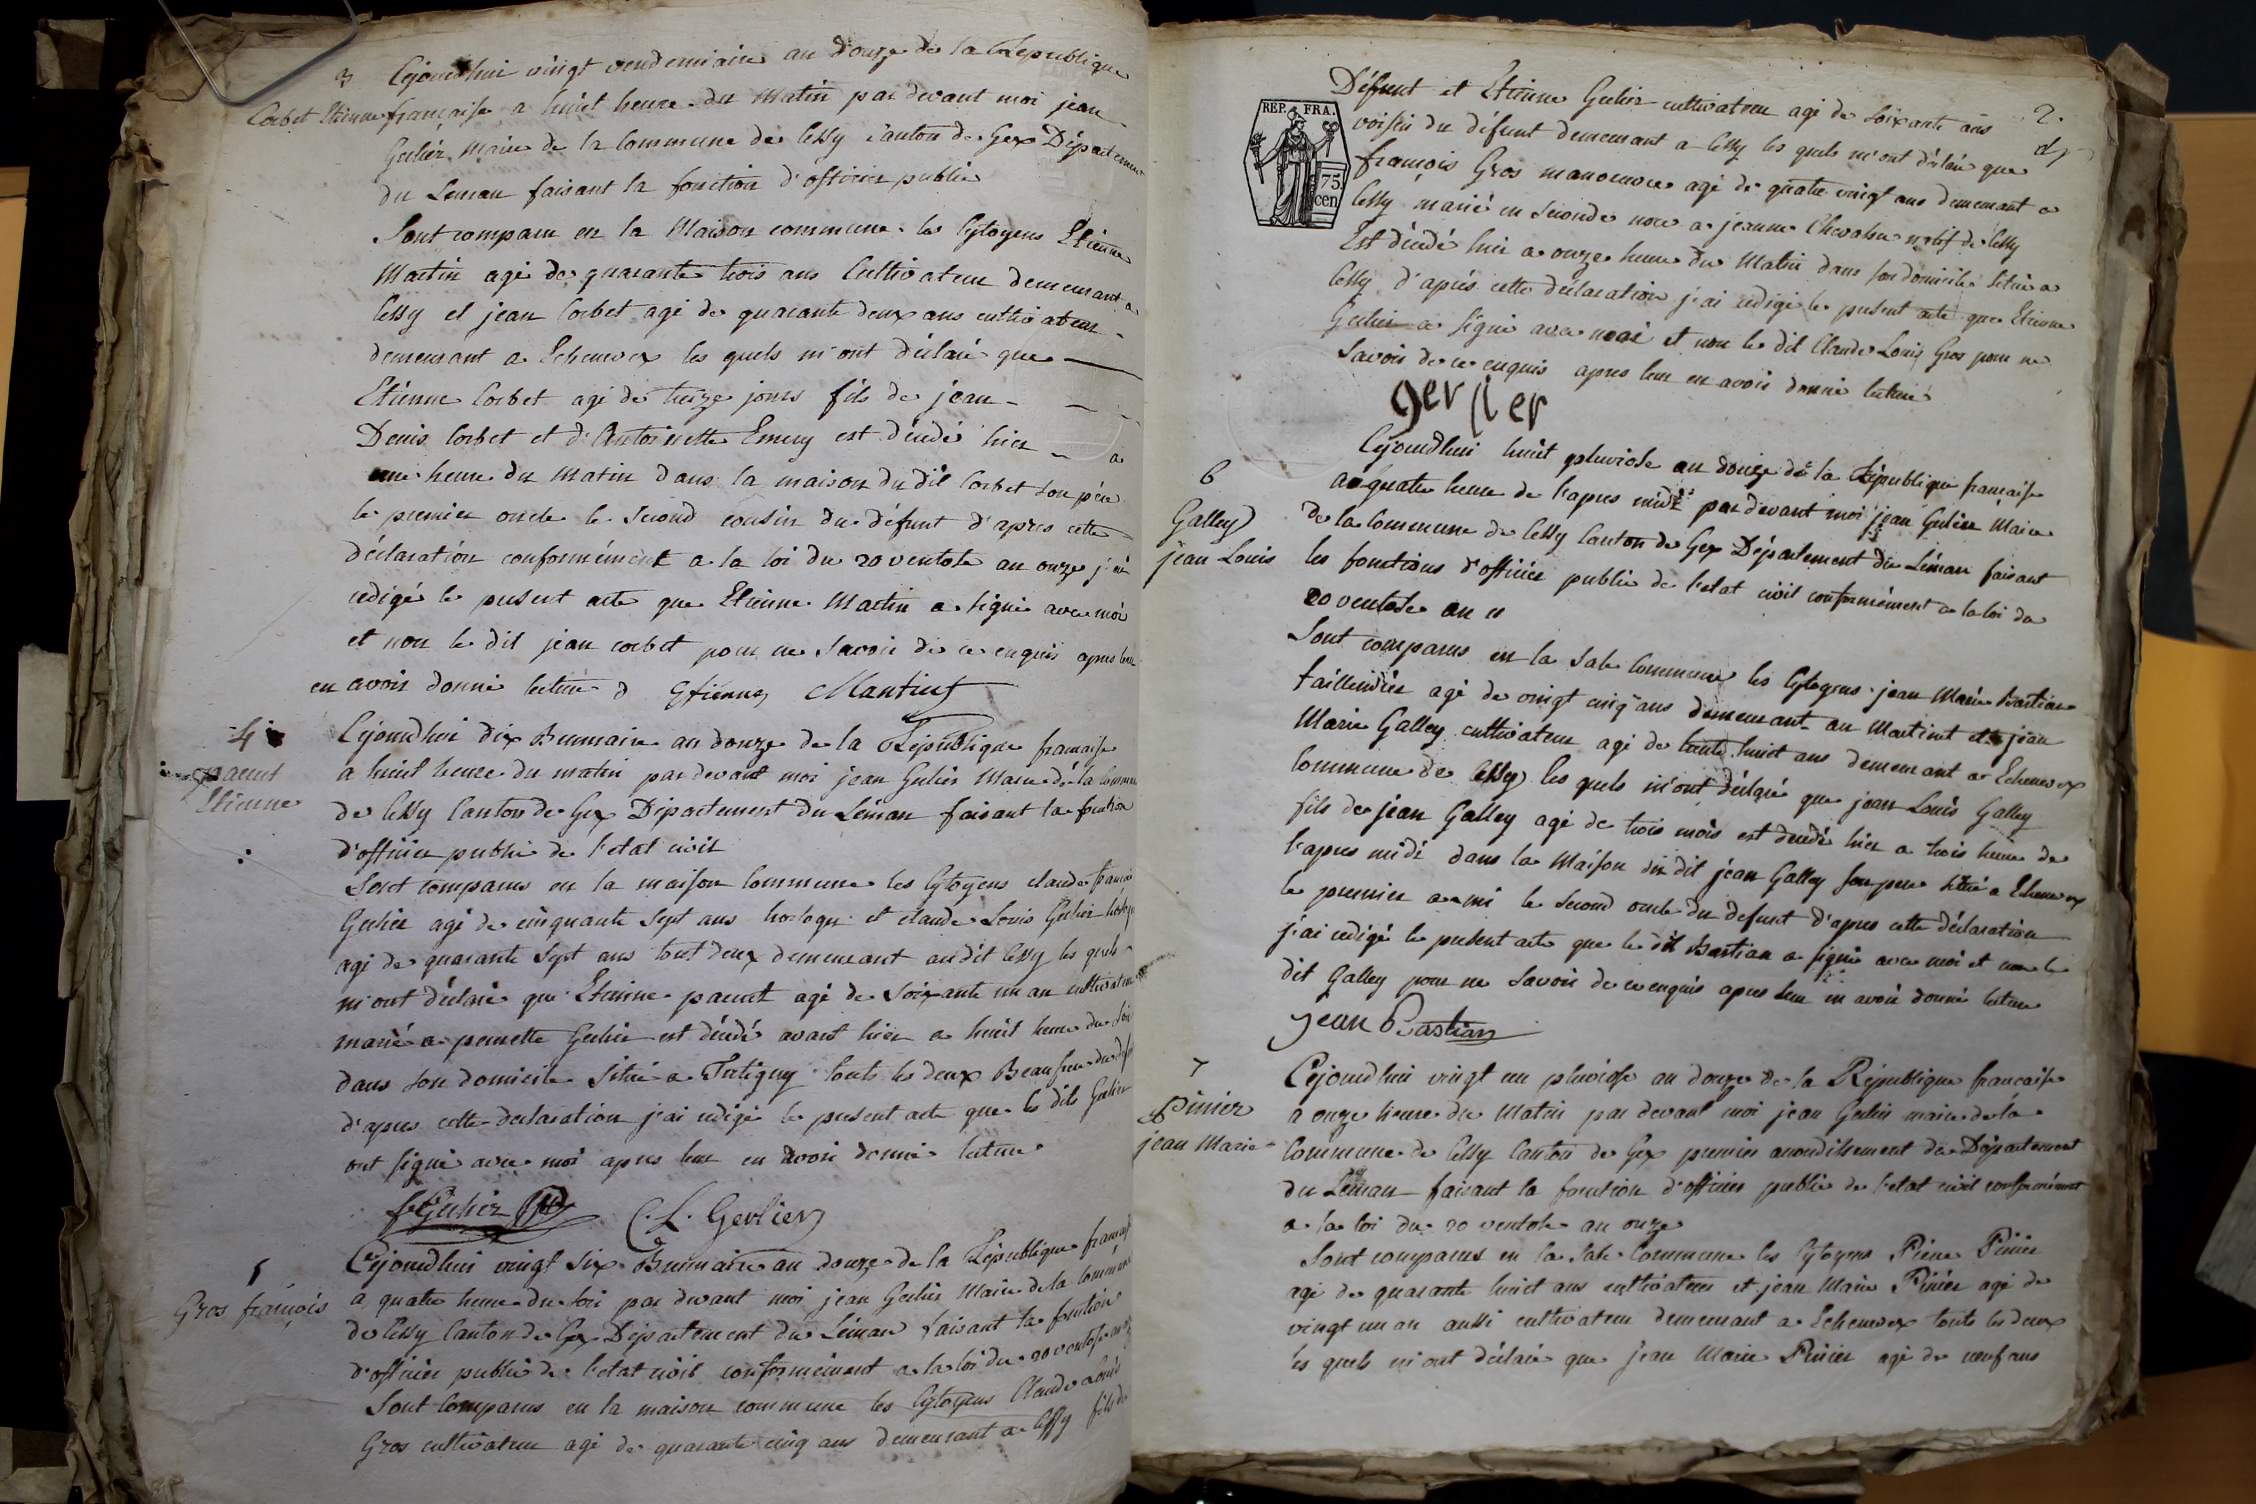 3
Corbet Etienne
Cejourdhui vingt vendemiaire an douze de la République
française a huiet heure du Matin par devant moi jean
Gerlier Maire de la Commune de Cessy Canton de Gex Département
du Leman faisant la fonction d'officier public
Sont comparu en la Maison commune les Cytoyens Etienne
Martin agé de quarante trois ans Cultivateur demeurant a
Cessy et jean Corbet agé de quarante deux ans cultivateur
demeurant a Echenevex les quels m'ont déclaré que
Etienne Corbet agé de treize jours fils de jean
Denis Corbet et d'Antoinette Emery est décédé hier a
une heure du Matin dans la maison du dit Corbet son père
le premier oncle le second cousin du défunt d'apres cette
déclaration conformément a la loi du 20 ventose an onze j'ai
redigé le present acte que Etienne Martin a signé avec moi
et non le dit jean corbet pour ne savoir de ce enquis apres leur
en avoir donné lecture Etienne Martin
4
pacout
Etienne
Cejourdhui dix Brumaire an douze de la République française
a huiet heure du matin par devant moi jean Gerlier Maire de la Commune
de Cessy Canton de Gex Département du Léman faisant la fonction
d'officier public de l'etat civil
Sont comparus en la maison Commune les Cytoyens claude françois
Gerlier agé de cinquante sept ans horloger et claude Louis Gerlier
agé de quarante sept ans tout deux demeurant au dit Cessy les quels
m'ont déclaré que Etienne pacout agé de soixante un an cultivateur
marié a pernette Gerlier est décédé avant hier a huiet heure du soir
dans son domicile situé a Tutigny touts les deux Beau frere du
d'apres cette declaration j'ai redigé le present acte que les dits Gerlier
ont signé avec moi apres leur en avoir donné lecture
C. L. Gerlier
5
Gros françois
Cejourdhui vingt six Brumaire an douze de la République
a quatre heure du soir par devant moi jean Gerlier Maire de la Commune
de Cessy Canton de Gex Département du Léman faisant la fonction
d'officier public de l'etat civil conformément a la loi du 20 ventose an
Sont Comparus en la maison commune les Cytoyens Claude Louis
Gros cultivateur agé de quarante cinq ans demeurant a Cessy fils du
2.
REP. FRA.
75
cen
Défunt et Etienne Gerlier cultivateur agé de soixante ans
voisin du défunt demeurant a Cessy les quels m'ont déclaré que
françois Gros manoeuvre agé de quatre vingt ans demeurant a
Cessy marié en seconde noce a jeanne Chevalier natif de Cessy
Est décédé hier a onze heure du Matin dans son domicile situé a
Cessy d'après cette déclaration j'ai redigé le present acte que Etienne
Gerlier a signé avec moi et non le dit Claude Louis Gros pour ne
Savoir de ce enquis apres leur en avoir donné lecture
gerlier
6
Galley
jean Louis
Cejourdhui huiet pluviose an douze de la République française
a quatre heure de l'apres midi par devant moi jean Gerlier Maire
de la Commune de Cessy Canton de Gex Département du Léman faisant
les fonctions d'officier public de l'etat civil conformément a la loi du
20 ventose an 11
Sont comparus en la sale Commune les Cytoyens jean Marie Bastian
taillandier agé de vingt cinq ans demeurant au Martinet et jean
Marie Galley cultivateur agé de trente huiet ans demeurant a Echenevex
Commune de Cessy les quels m'ont déclaré que jean Louis Galley
fils de jean Galley agé de trois mois est decédé hier a trois heure de
l'apres midi dans la Maison du dit jean Galley son pere situé a Echenevex
le premier ami le second oncle du defunt d'apres cette déclaration
j'ai redigé le present acte que le dit Bastian a signé avec moi et non le
dit Galley pour ne savoir de ce enquis apres leur en avoir donné lecture
jean Bastian
7
Pinier
jean Marie
Cejourdhui vingt un pluviose an douze de la République française
a onze heure du Matin par devant moi jean Gerlier maire de la
Commune de Cessy Canton de Gex premier arrondissement du Département
du Léman faisant la fonction d'officier public de l'etat civil conformément
a la loi du 20 ventose an onze
Sont comparus en la sale Commune les Cytoyens Pierre Pinier
agé de quarante huiet ans cultivateur et jean Marie Pinier agé de
vingt un an aussi cultivateur demeurant a Echenevex touts les deux
les quels m'ont déclaré que jean Marie Pinier agé de neuf ans